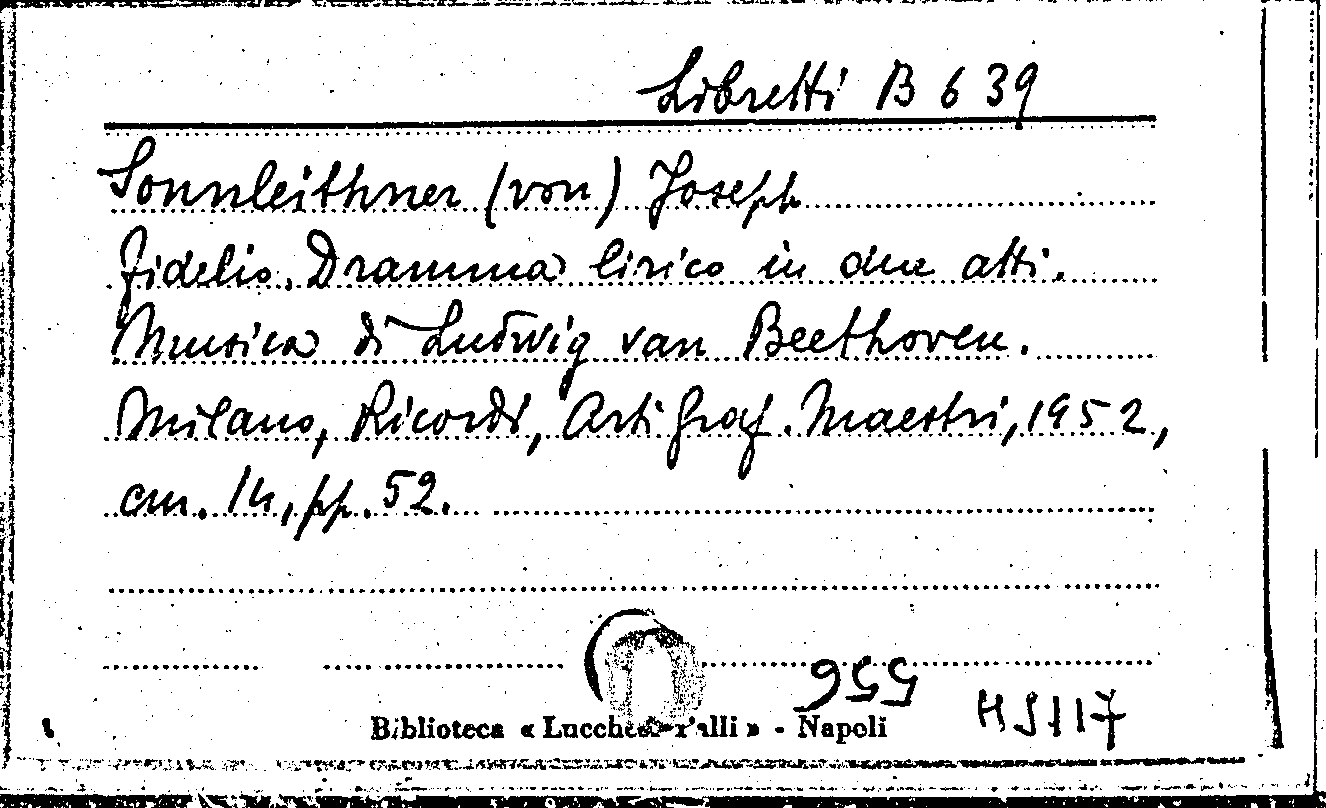 Libretti B 6 39
Sonnleithner (von) Joseph
Fidelio. Dramma lirico in due atti.
Musica di Ludwig van Beethoven.
Milano, Ricordi, Arti Graf. Maestri, 1952,
cm. 14, pp. 52.
Biblioteca « » - Napoli